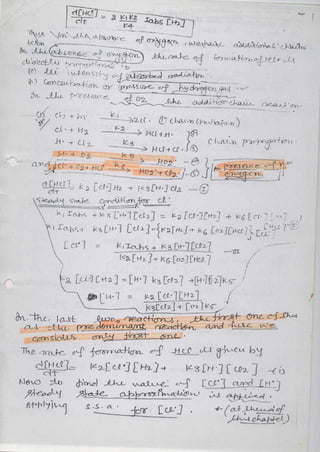 d[HCl]/dt = 2 K1K2/K4 Iabs [H2]
Thus in the absence of oxygen, we have additional chain
term
In the absence of oxygen, the rate of formation of HCl is
directly proportional to
(i) the intensity of absorbed radiation.
(ii) concentration or pressure of hydrogen gas.
In the pressure of O2 the addition chain reaction.
Cl2 + hν K1 → 2Cl· (chain initiation)
Cl· + H2 K2 → HCl + H·
H· + Cl2 K3 → HCl + Cl· chain propagation
H· + O2 K5 → HO2·
and Cl· + O2 + HCl K6 → HO2· + Cl2 pressure of oxygen
d[HCl]/dt = K2[Cl·]H2 + K3[H·]Cl2 — ①
steady state condition for Cl·
K1 Iabs + K3[H·][Cl2] = K2[Cl·][H2] + K6[Cl·]
K1 Iabs + K3[H·][Cl2] = {K2[H2] + K6[O2][HCl]}[Cl·]
[Cl·] = K1 Iabs + K3[H·][Cl2] / K2[H2] + K6[O2][HCl]
K2[Cl·][H2] = [H·] K3[Cl2] + [H·][O2]K5
[H·] = K2[Cl·][H2] / K3[Cl2] + [O2]K5
In the last two reactions, the first one of this
as the predominant reaction and here we
consider only first one.
The rate of formation of HCl is given by
d[HCl]/dt = K2[Cl·][H2] + K3[H·][Cl2] - is
Now to find the value of [Cl·] and [H·]
steady state approximation is applied.
Applying s.s.a. for [Cl·] * (at the end of this chapter)